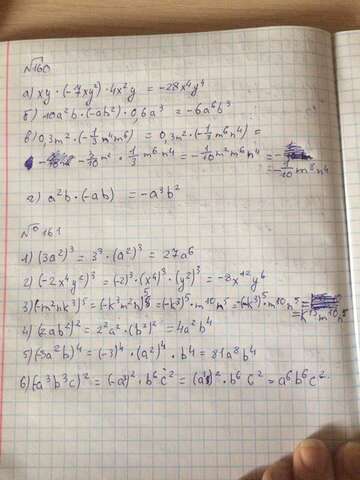 №160
а) xy · (-7xy²) · 4x²y = -28x⁴y⁴
б) -10a²b · (-ab²) · 0,6a³ = -6a⁶b³
в) 0,3m² · (-1/3 m⁴m⁶) = 0,3m² · (-1/3 m⁶n⁴) =
-3/10 m² · 1/3 m⁶n⁴ = -1/10 m²m⁶n⁴ = -
= -1/10 m⁸n⁴
г) a²b · (-ab) = -a³b²
№161
1) (3a²)³ = 3³ · (a²)³ = 27a⁶
2) (-2x⁴y²)³ = (-2)³ · (x⁴)³ · (y²)³ = -8x¹²y⁶
3) (-m²nk³)⁵ = (-k³m²n)⁵ = (-k³)⁵ · m10n⁵ = (-k)⁵ · m10n⁵ =
= k¹⁵m10n⁵
4) (2ab²)² = 2²a² · (b²)² = 4a²b⁴
5) (-3a²b)⁴ = (-3)⁴ · (a²)⁴ · b⁴ = 81a⁸b⁴
6) (a³b³c)² = (-a³)² · b⁶c² = (a³)² · b⁶c² = a⁶b⁶c²